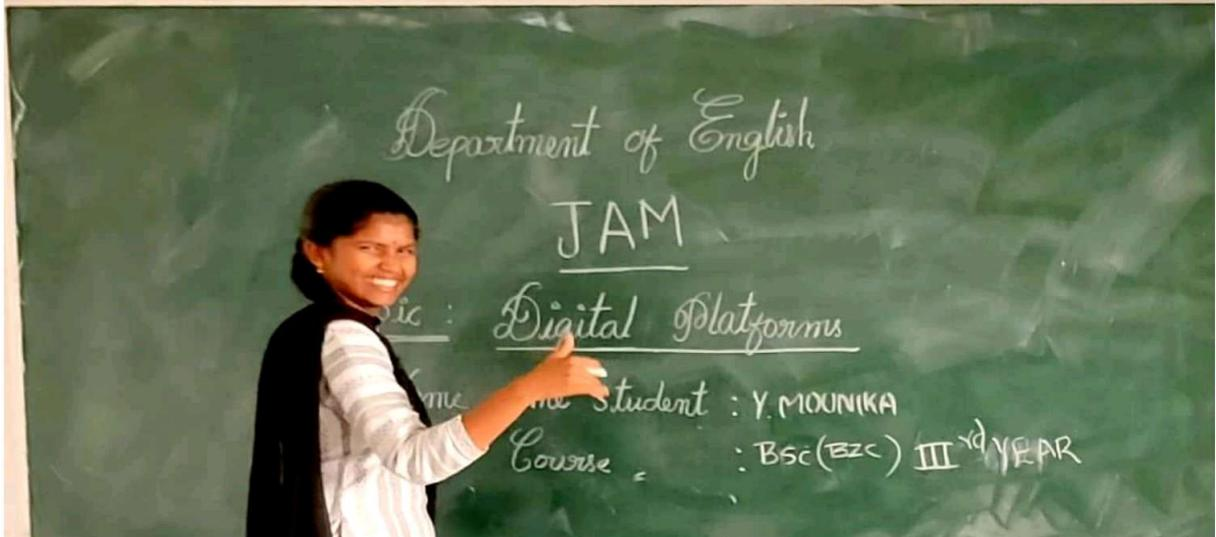 Department of English
JAM
ic : Digital Platforms
me Student : Y. MOUNIKA
Course : BSc (BZC) III rd YEAR